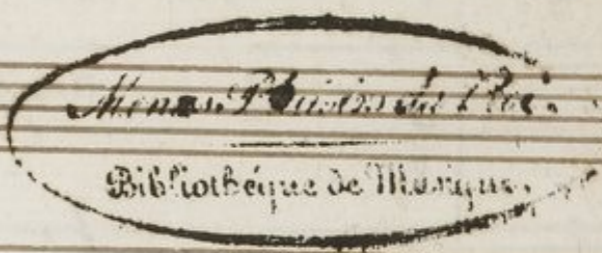 Menus Plaisirs du Roi.
Bibliothéque de Musique.